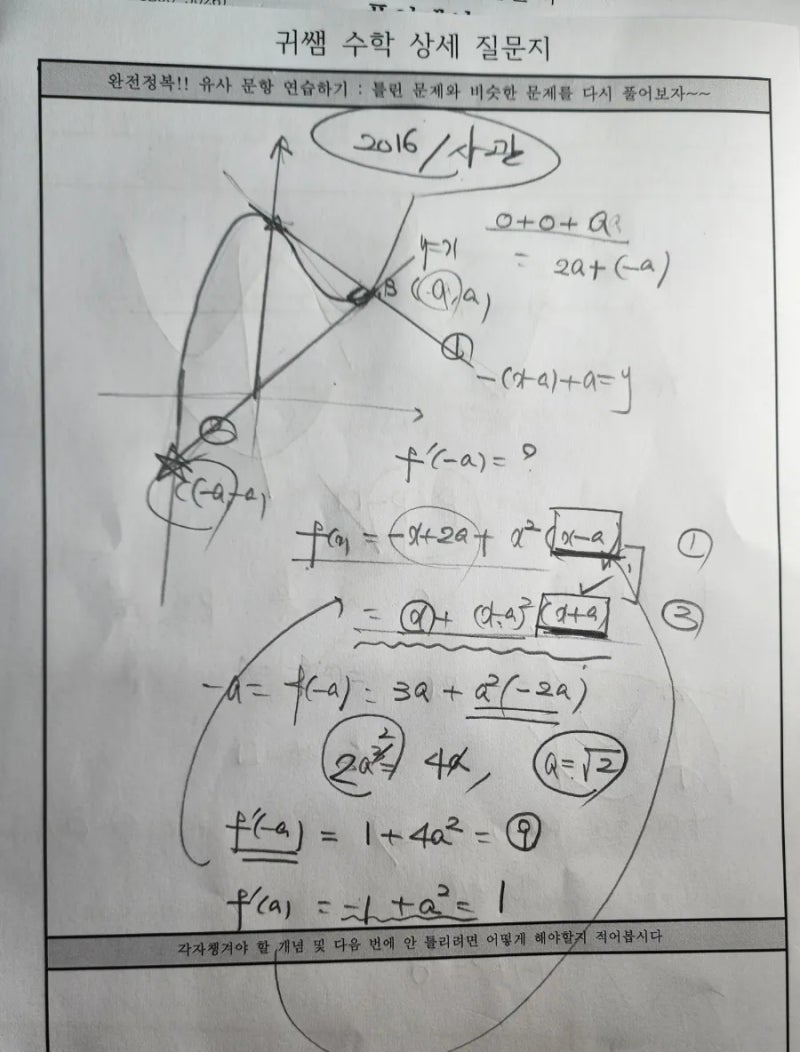 귀쌤 수학 상세 질문지
완전정복!! 유사 문항 연습하기 : 틀린 문제와 비슷한 문제를 다시 풀어보자~~
2016/사관
0+0+a
= 2a+(-a)
y=x
B
(a, a)
①
-(x-a)+a=y
②
(-a, -a)
f'(-a) = ?
f(x) = -x+2a + x²(x-a) ①
= x + (x-a)²(x+a) ③
-a = f(-a) = 3a + a²(-2a)
2a² = 4, a=√2
f'(-a) = 1+4a² = 9
f'(a) = -1 + a² = 1
각자챙겨야 할 개념 및 다음 번에 안 틀리려면 어떻게 해야할지 적어봅시다